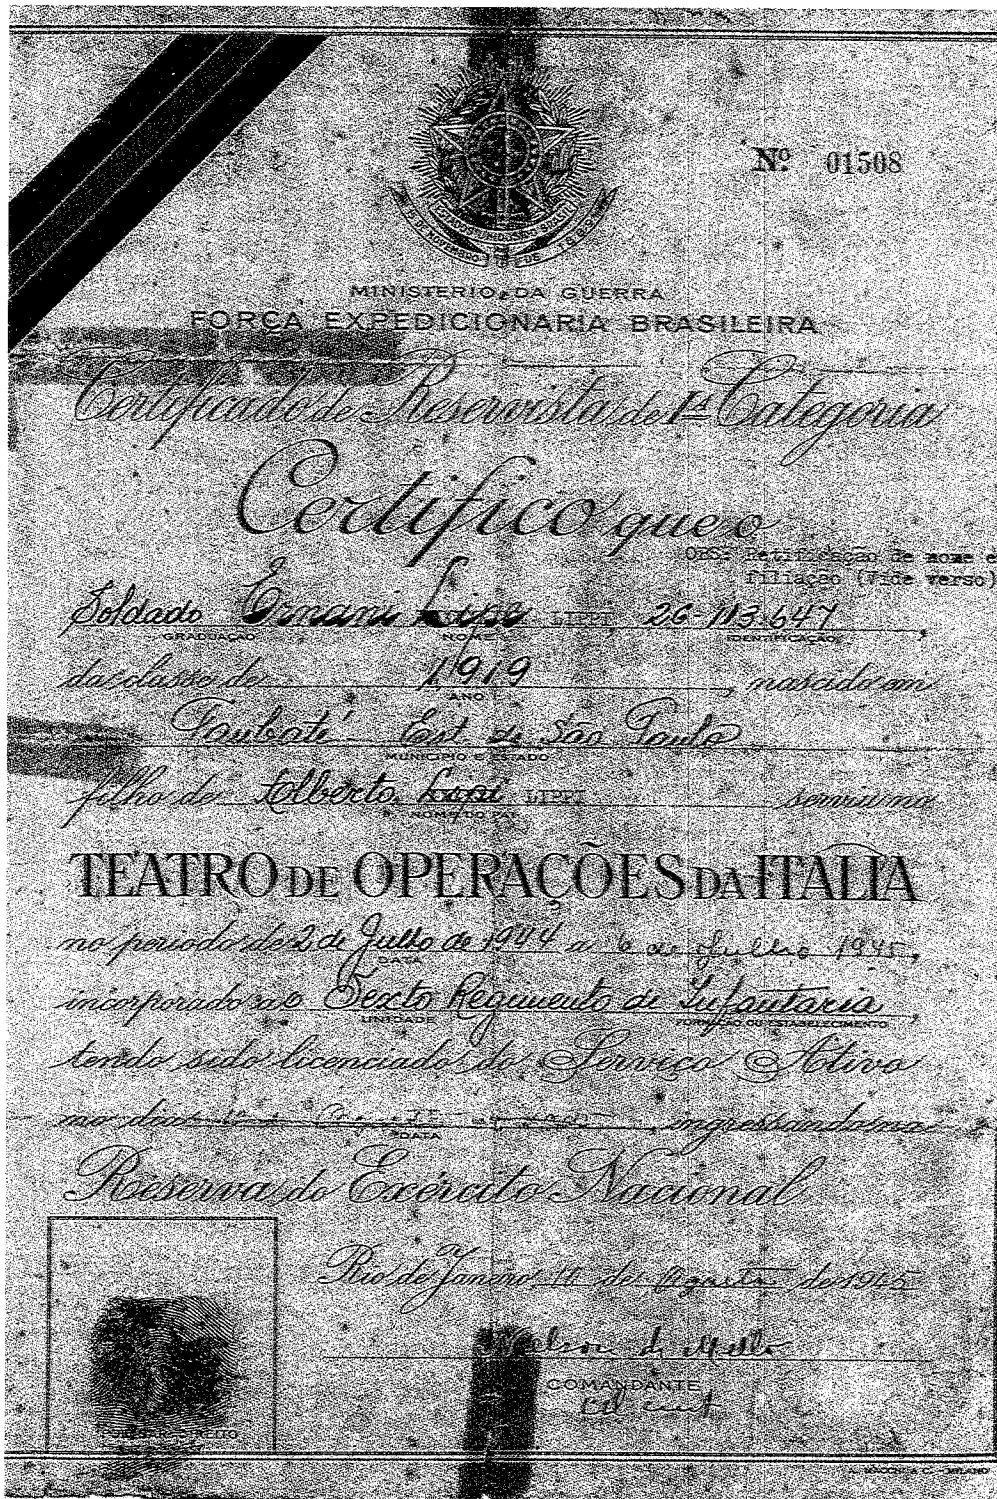 Nº 01508
ESTADOS UNIDOS DO BRASIL
15 DE NOVEMBRO DE 1889
MINISTERIO DA GUERRA
FORÇA EXPEDICIONARIA BRASILEIRA
Certificado de Reservista de 1ª Categoria
Certifico que o
OBS: Retificação de nome e
filiação (Vide verso)
Soldado Ernani LIPPI 2G-113.647
GRADUAÇÃO NOME IDENTIFICAÇÃO
da classe de 1919, nascido em
ANO
Taubaté - Est. de São Paulo
MUNICIPIO E ESTADO
filho de Alberto LIPPI serviu no
NOME DO PAI
TEATRO DE OPERAÇÕES DA ITALIA
no periodo de 2 de Julho de 1944 a 6 de Julho 1945,
DATA
incorporado ao Sexto Regimento de Infantaria,
UNIDADE FORMAÇÃO OU ESTABELECIMENTO
tendo sido licenciado do Serviço Ativo
no dia , ingressando na
DATA
Reserva do Exército Nacional
Rio de Janeiro 10 de Agosto de 1945
Nelson de Mello
COMANDANTE
POLEGAR DIREITO